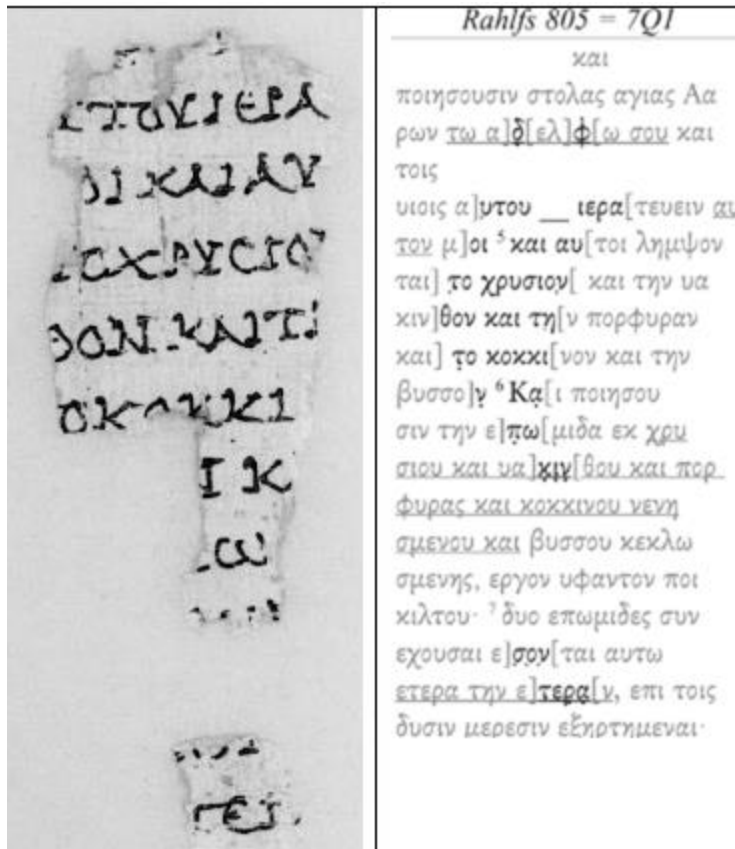 ΤΟΥΙΕΡΑ
ΟΙΚΑΙΑΥ
ΤΟΧΡΥϹΙΟ
ΘΟΝΚΑΙΤ
ΟΚΟΚΚΙ
Κ
Ω
ΤΕΡ
Rahlfs 805 = 7Q1
και
ποιησουσιν στολας αγιας Αα
ρων τω α]δ̣[ελ]φ̣[ω σου και
τοις
υιοις α]υτου __ ιερα[τευειν αυ
τον μ]οι ⁵ και αυ[τοι λημψον
ται] τ̣ο χρυσιον̣[ και την υα
κιν]θον και τη[ν πορφυραν
και] τ̣ο κοκκι[νον και την
βυσσο]ν̣ ⁶ Κα̣[ι ποιησου
σιν την ε]π̣ω[μιδα εκ χρυ
σιου και υα]κ̣ι̣ν̣[θου και πορ
φυρας και κοκκινου νενη
σμενου και βυσσου κεκλω
σμενης, εργον υφαντον ποι
κιλτου· ⁷ δυο επωμιδες συν
εχουσαι ε]σ̣ο̣ν̣[ται αυτω
ετερα την ε]τερα̣[ν, επι τοις
δυσιν μερεσιν εξηρτημεναι·